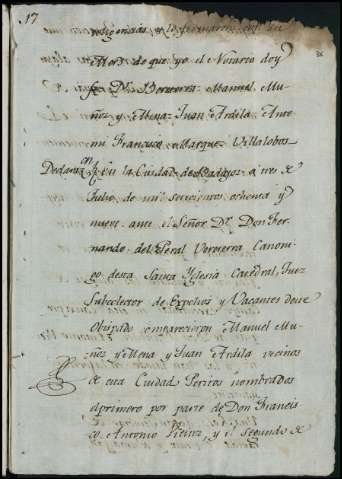 17
36
ligencias, y lo firmaron con su
Mers. de que yo el Notario doy
fe Dr. Beroterra Manuel Mu-
ñoz y Mena Juan Ardila Ante
mi Francisco Marquez Villalobos
Declarazon En la Ciudad de Badajoz a tres de
Julio de mil setecientos ochenta y
nueve ante el Señor Dr. Don Fer-
nando del Peral Veroterra Canoni-
go desta Santa Yglesia Catedral, Juez
Subcolector de Expolios y Vacantes de este
Obispado comparecieron Manuel Mu-
ñoz y Mena y Juan Ardila vecinos
de esta Ciudad Peritos nombrados
el primero por parte de Don Francis-
co Antonio y el segundo de